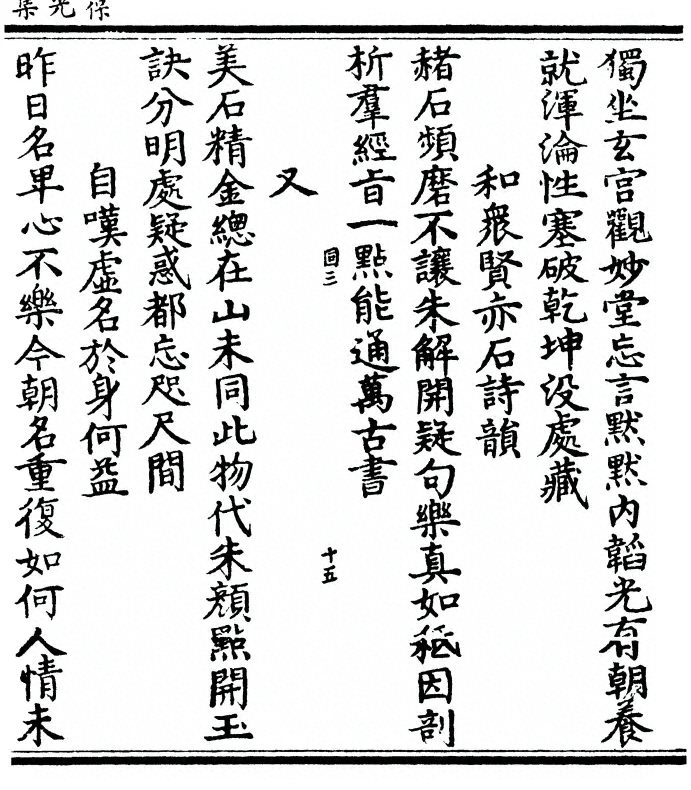 葆光集
獨坐玄宮觀妙堂忘言默默內韜光有朝養
就渾淪性塞破乾坤没處藏
和衆賢亦石詩韻
赭石頻磨不讓朱解開疑句樂真如秪因剖
析羣經旨一點能通萬古書
同三　十五
又
美石精金總在山未同此物代朱顏點開玉
訣分明處疑惑都忘咫尺間
自嘆虛名於身何益
昨日名卑心不樂今朝名重復如何人情未